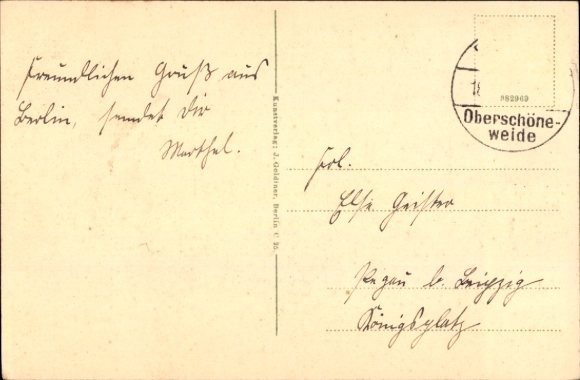 Freundlichen Gruß aus
Berlin, sendet dir
Marthel.
Kunstverlag: J. Goldiner, Berlin C 25.
882969
18
Oberschöne-
weide
Frl.
Else
Pegau b. Leipzig
Königsplatz